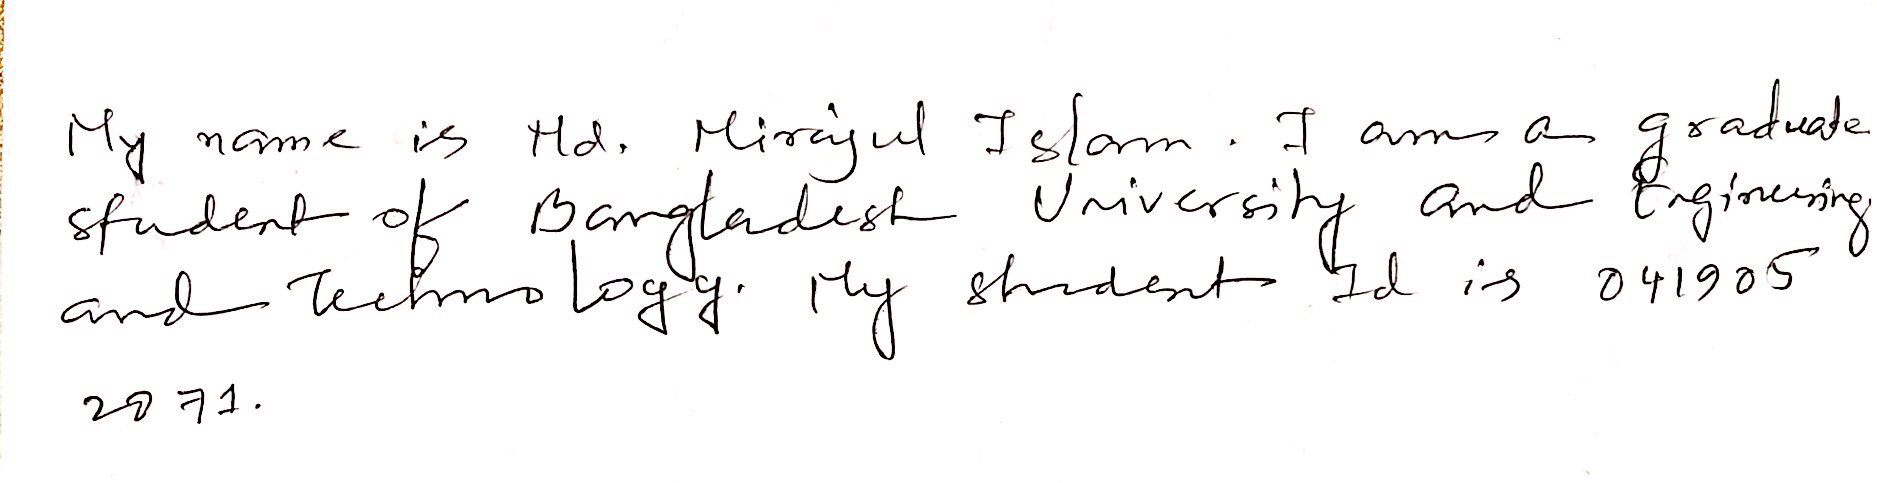 My name is Md. Mirajul Islam. I am a graduate
student of Bangladesh University and Engineering
and Technology. My student Id is 041905
2071.